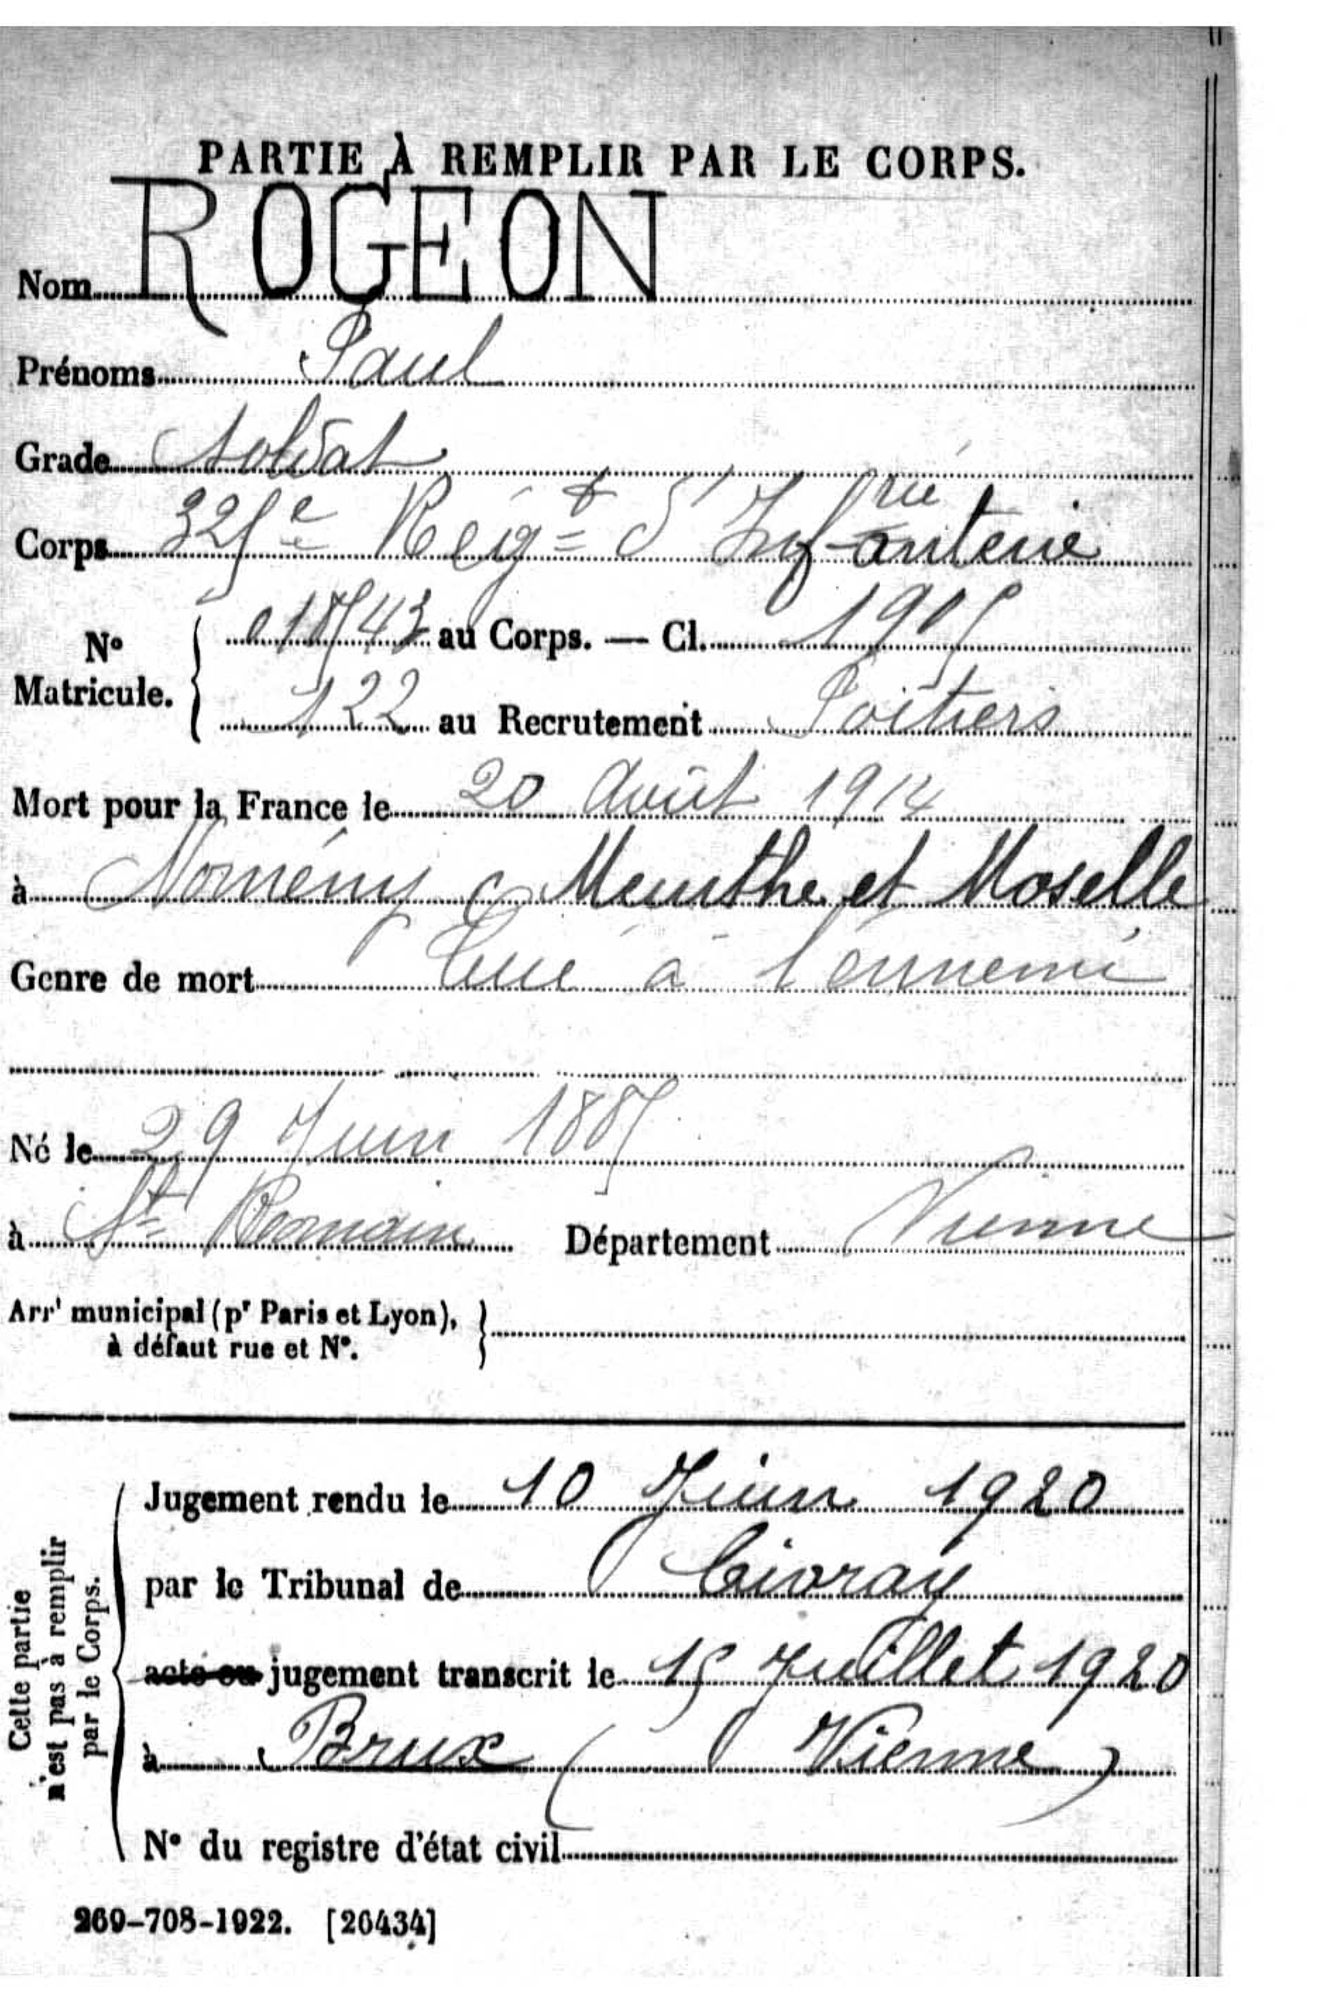 PARTIE À REMPLIR PAR LE CORPS.
Nom ROGEON
Prénoms Paul
Grade Soldat
Corps 325e Régt d'Infanterie rie
N° Matricule. { 01543 au Corps. — Cl. 1905
122 au Recrutement Poitiers
Mort pour la France le 20 Août 1914
à Nomény Meurthe et Moselle
Genre de mort Tué à l'ennemi
Né le 29 Juin 1885
à St Romain Département Vienne
Arrt municipal (pr Paris et Lyon), }
à défaut rue et N°.
Cette partie n'est pas à remplir par le Corps.
Jugement rendu le 10 Juin 1920
par le Tribunal de Civray
acte ou jugement transcrit le 15 Juillet 1920
à Brux (Vienne)
N° du registre d'état civil
269-708-1922. [26434]